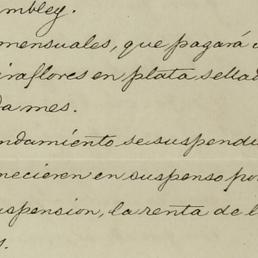 mbley.
mensuales, que pagará
iraflores en plata sellad
da mes.
ndamiento se suspende
necieren en suspenso por
uspension, la renta de l
s.